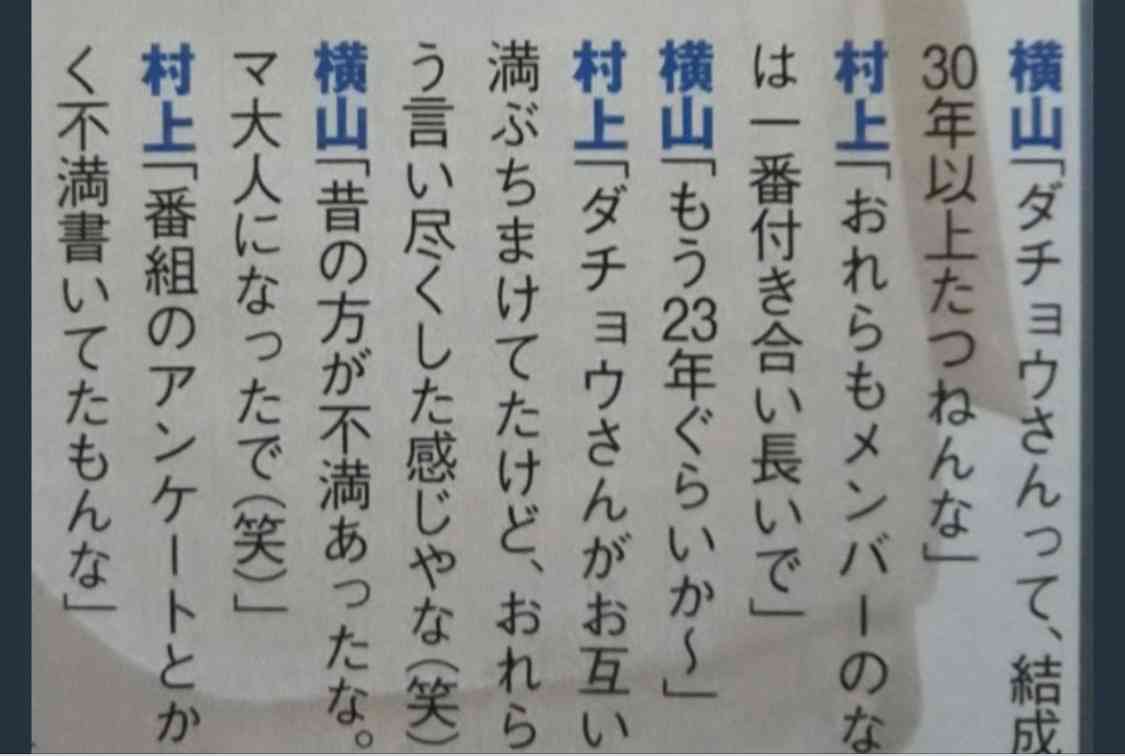 横山「ダチョウさんって、結成
30年以上たつねんな」
村上「おれらもメンバーのな
は一番付き合い長いで」
横山「もう23年ぐらいか〜」
村上「ダチョウさんがお互い
満ぶちまけてたけど、おれら
う言い尽くした感じやな(笑)
横山「昔の方が不満あったな。
マ大人になったで(笑)」
村上「番組のアンケートとか
く不満書いてたもんな」